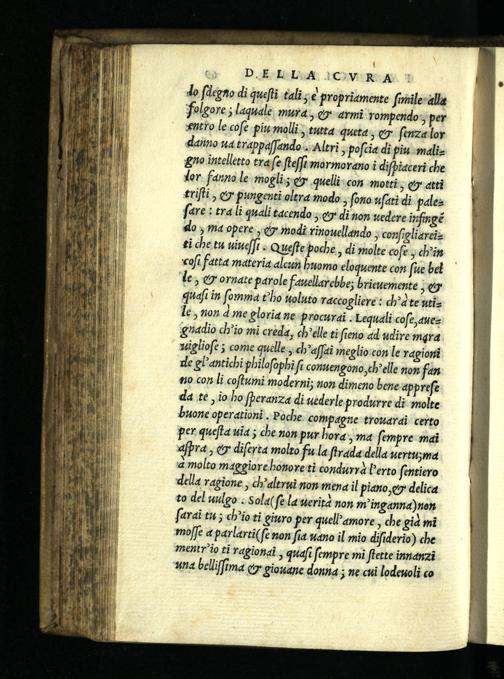 DELLA CVRA
lo sdegno di questi tali, è propriamente simile alla
folgore; laquale mura, & armi rompendo, per
entro le cose piu molli, tutta queta, & senza lor
danno ua trappassando. Altri, poscia di piu mali=
gno intelletto tra se stessi mormorano i dispiaceri che
lor fanno le mogli; & quelli con motti, & atti
tristi, & pungenti oltra modo, sono usati di pale=
sare: tra li quali tacendo, & di non uedere infingē
do, ma opere, & modi rinouellando, consigliarei=
ti che tu uiuessi. Queste poche, di molte cose, ch'in
cosi fatta materia alcun huomo eloquente con sue bel
le, & ornate parole fauellarebbe; brieuemente, &
quasi in somma t'ho voluto raccogliere: ch'à te uti=
le, non à me gloria ne procurai. Lequali cose, aue=
gnadio ch'io mi creda, ch'elle ti sieno ad udire mara
uigliose; come quelle, ch'assai meglio con le ragioni
de gl'antichi philosophi si conuengono, ch'elle non fan
no con li costumi moderni; non dimeno bene apprese
da te, io ho speranza di uederle produrre di molte
buone operationi. Poche compagne trouarai certo
per questa uia; che non pur hora, ma sempre mai
aspra, & diserta molto fu la strada della uertu; ma
à molto maggiore honore ti condurrà l'erto sentiero
della ragione, ch'altrui non mena il piano, & delica
to del uulgo. Sola (se la verità non m'inganna) non
sarai tu; ch'io ti giuro per quell'amore, che già mi
mosse a parlarti (se non sia vano il mio disiderio) che
mentr'io ti ragionai, quasi sempre mi stette innanzi
una bellissima & giouane donna; ne cui lodeuoli co